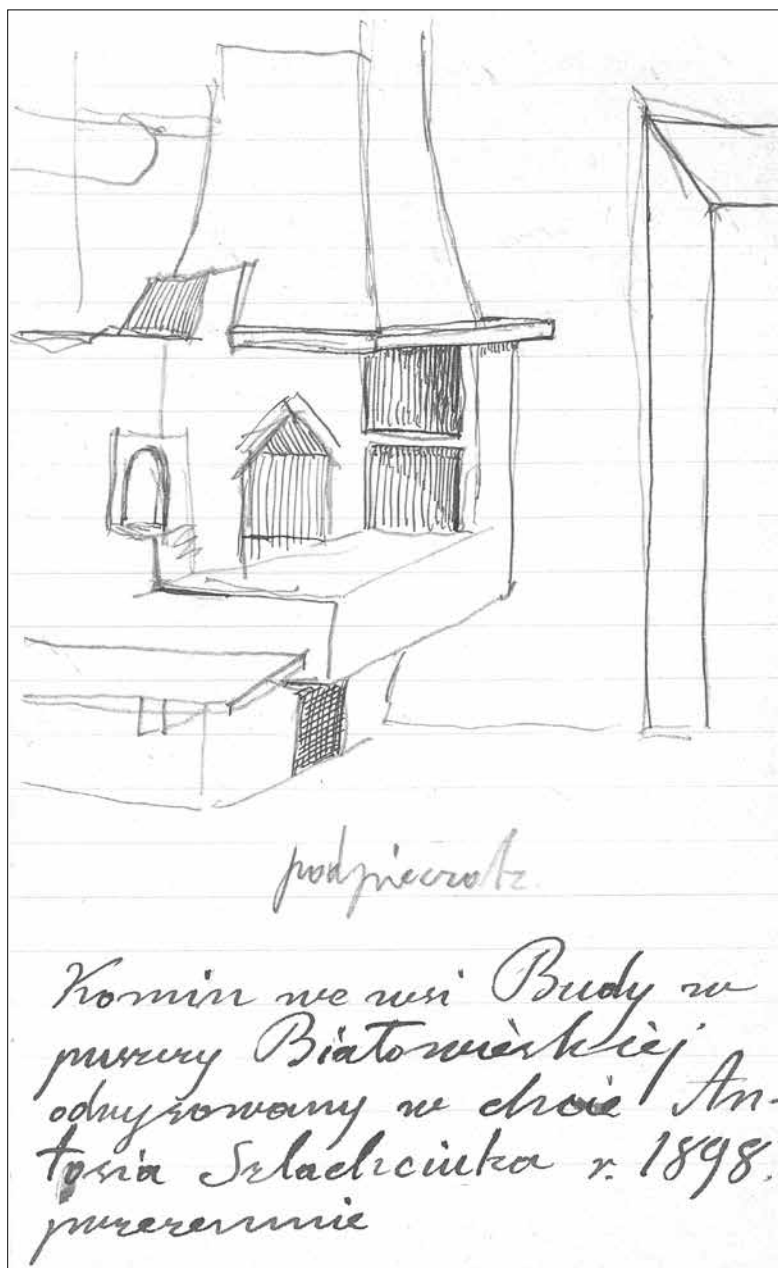 Komin we wsi Budy w
puszczy Białowieskiéj
odrysowany w chacie An-
tosia Szlachciuka r. 1898.
przezemnie